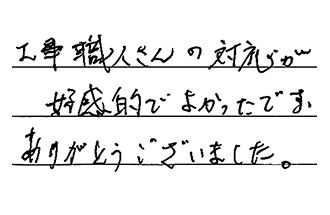 工事職人さんの対応が
好感的でよかったです、
ありがとうございました。